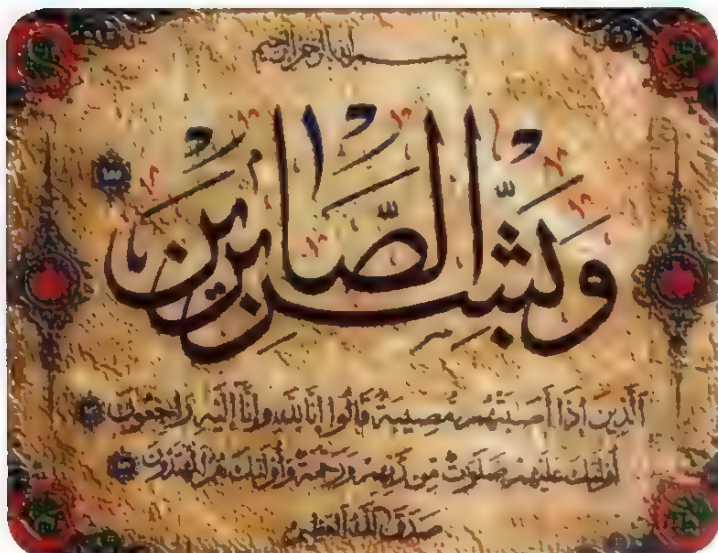 بسم الله الرحمن الرحيم
وَبَشِّرِ الصَّابِرِينَ
الَّذِينَ إِذَا أَصَابَتْهُم مُّصِيبَةٌ قَالُوا إِنَّا لِلَّهِ وَإِنَّا إِلَيْهِ رَاجِعُونَ
أُولَٰئِكَ عَلَيْهِمْ صَلَوَاتٌ مِّن رَّبِّهِمْ وَرَحْمَةٌ وَأُولَٰئِكَ هُمُ الْمُهْتَدُونَ
صدق الله العظيم